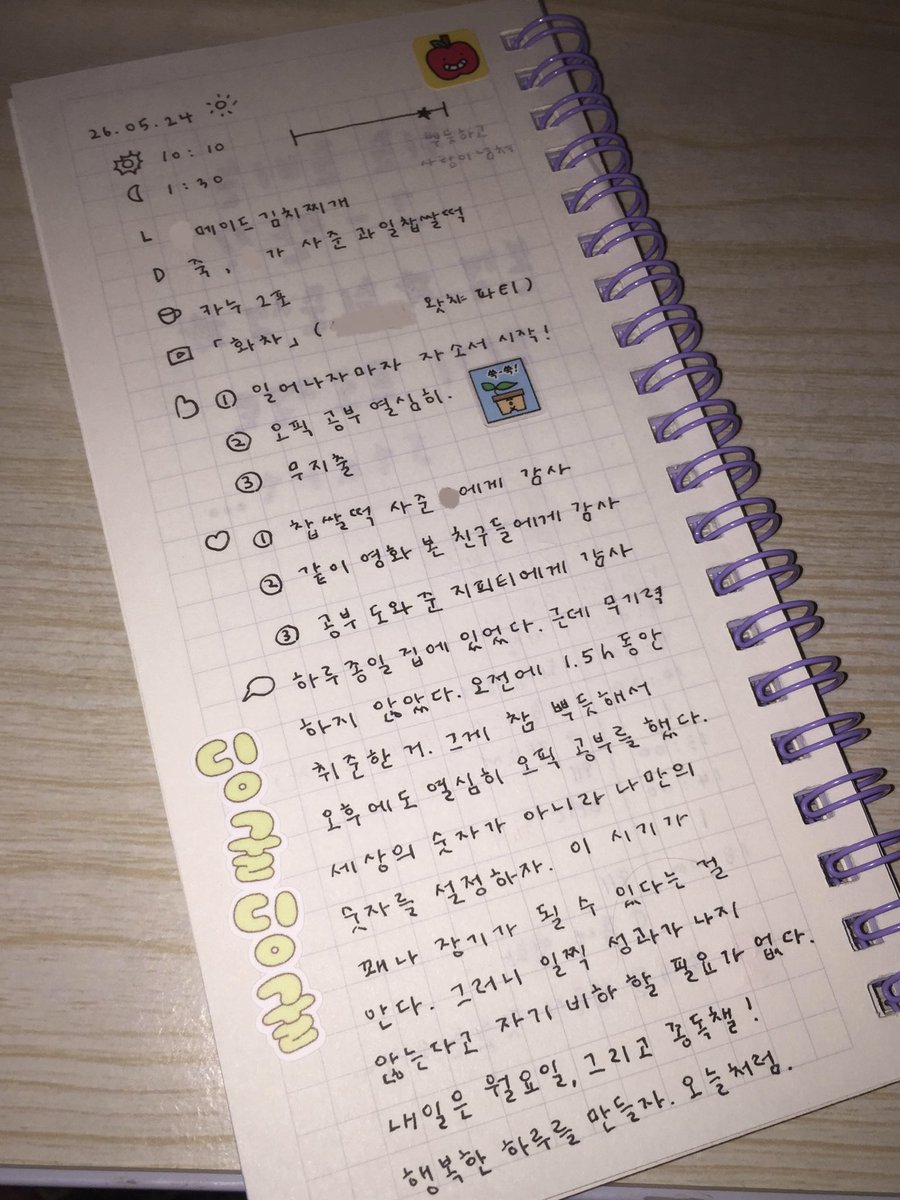 26.05.24
10:10
뿌듯하고
1:30
L 메이드 김치찌개
D 죽, 가 사준 과일찹쌀떡
카누 2포
「화차」 ( 왓챠 파티)
① 일어나자마자 자소서 시작!
쑥-쑥!
② 오픽 공부 열심히.
③ 무지출
① 찹쌀떡 사준 에게 감사
② 같이 영화 본 친구들에게 감사
③ 공부 도와준 지피티에게 감사
하루종일 집에 있었다. 근데 무기력
하지 않았다. 오전에 1.5h 동안
취준한 거. 그게 참 뿌듯해서
오후에도 열심히 오픽 공부를 했다.
세상의 숫자가 아니라 나만의
숫자를 설정하자. 이 시기가
꽤나 장기가 될 수 있다는 걸
안다. 그러니 일찍 성과가 나지
않는다고 자기 비하 할 필요가 없다.
내일은 월요일, 그리고 공독챌!
행복한 하루를 만들자. 오늘처럼.